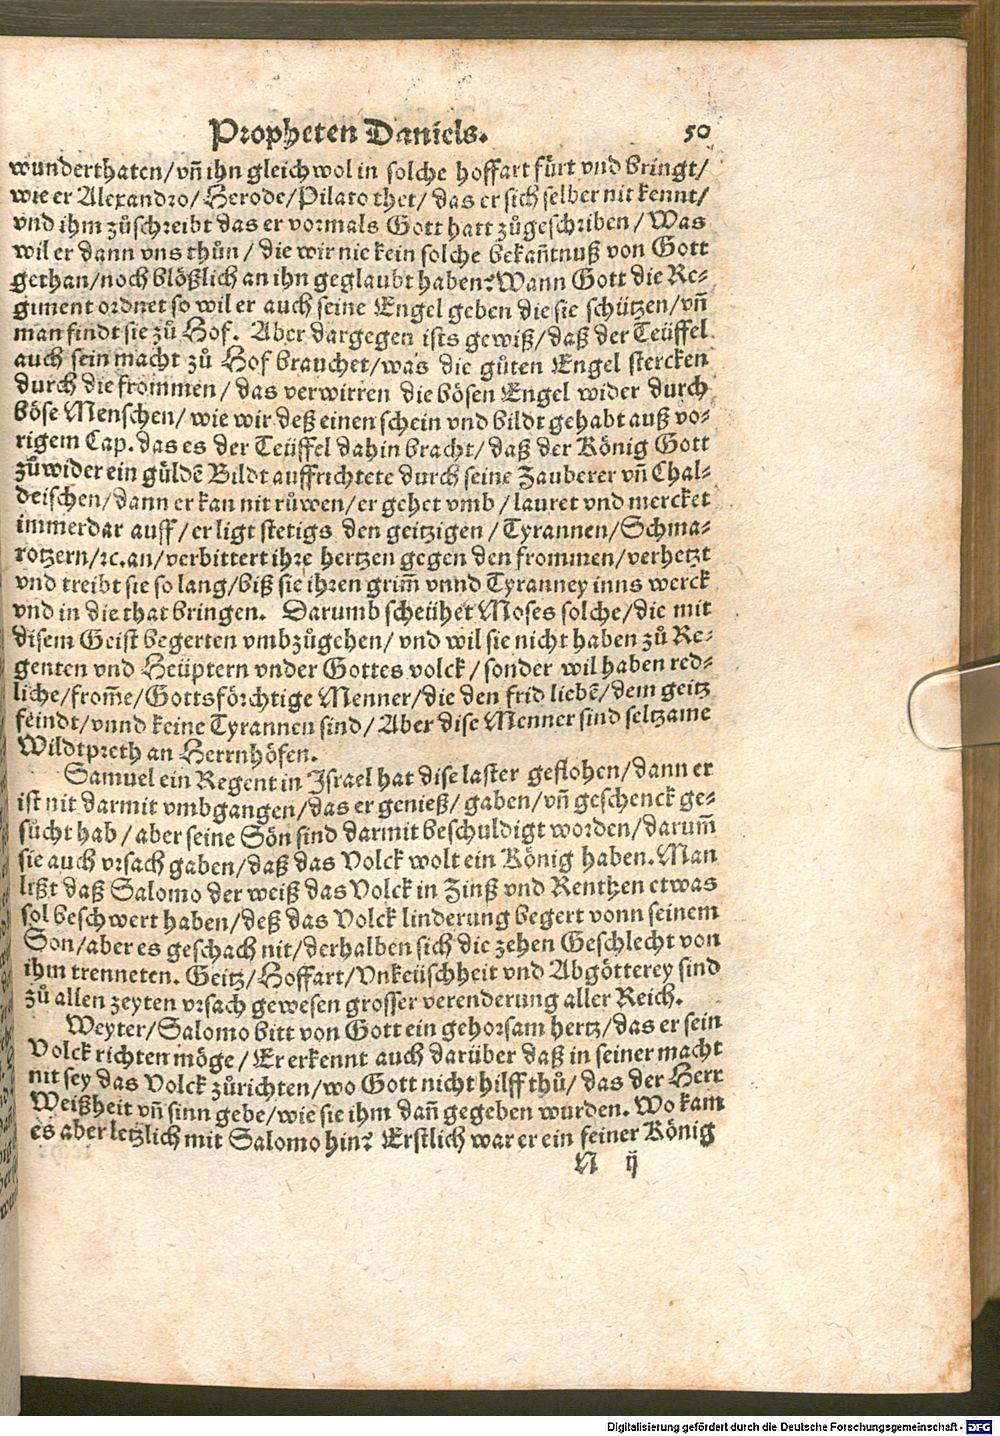 Propheten Daniels. 50
wunderthaten/ vñ ihn gleichwol in solche hoffart fürt vnd bringt/
wie er Alexandro/ Herode/ Pilato thet/ das er sich selber nit kennt/
vnd ihm zůschreibt das er vormals Gott hatt zůgeschriben/ Was
wil er dann vns thůn/ die wir nie kein solche bekañtnuß von Gott
gethan/ noch blößlich an ihn geglaubt haben? Wann Gott die Re-
giment ordnet so wil er auch seine Engel geben die sie schützen/ vñ
man findt sie zů Hof. Aber dargegen ists gewiß/ daß der Teüffel
auch sein macht zů Hof brauchet/ was die gůten Engel stercken
durch die frommen/ das verwirren die bösen Engel wider durch
böse Menschen/ wie wir deß einen schein vnd bildt gehabt auß vo-
rigem Cap. das es der Teüffel dahin bracht/ daß der König Gott
zůwider ein güldē Bildt auffrichtete durch seine Zauberer vñ Chal-
deischen/ dann er kan nit růwen/ er gehet vmb/ lauret vnd mercket
immerdar auff/ er ligt stetigs den geitzigen/ Tyrannen/ Schma-
rotzern/ ꝛc. an/ verbittert ihre hertzen gegen den frommen/ verhetzt
vnd treibt sie so lang/ biß sie ihren grim̃ vnnd Tyranney inns werck
vnd in die that bringen. Darumb scheühet Moses solche/ die mit
disem Geist begerten vmbzůgehen/ vnd wil sie nicht haben zů Re-
genten vnd Heüptern vnder Gottes volck/ sonder wil haben red-
liche/ from̃e/ Gottsförchtige Menner/ die den frid liebē/ dem geitz
feindt/ vnnd keine Tyrannen sind/ Aber dise Menner sind seltzame
Wildtpreth an Herrnhöfen.
Samuel ein Regent in Israel hat dise laster geflohen/ dann er
ist nit darmit vmbgangen/ das er genieß/ gaben/ vñ geschenck ge-
sůcht hab/ aber seine Sön sind darmit beschuldigt worden/ darum̃
sie auch vrsach gaben/ daß das Volck wolt ein König haben. Man
lißt daß Salomo der weiß das Volck in Zinß vnd Rentzen etwas
sol beschwert haben/ deß das Volck linderung begert vonn seinem
Son/ aber es geschach nit/ derhalben sich die zehen Geschlecht von
ihm trenneten. Geitz/ Hoffart/ Vnkeüschheit vnd Abgötterey sind
zů allen zeyten vrsach gewesen grosser verenderung aller Reich.
Weyter/ Salomo bitt von Gott ein gehorsam hertz/ das er sein
Volck richten möge/ Er erkennt auch darüber daß in seiner macht
nit sey das Volck zůrichten/ wo Gott nicht hilff thů/ das der Herr
Weißheit vñ sinn gebe/ wie sie ihm dañ gegeben wurden. Wo kam
es aber letzlich mit Salomo hin? Erstlich war er ein feiner König
N ij
Digitalisierung gefördert durch die Deutsche Forschungsgemeinschaft - DFG